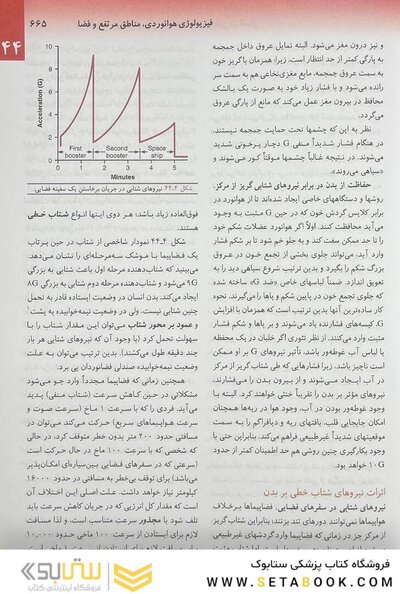 فیزیولوژی هوانوردی، مناطق مرتفع و فضا ۶۶۵
۴۴
و نیز درون مغز می‌شود. البته تمایل عروق داخل جمجمه
به پارگی کمتر از حد انتظار است، زیرا: همزمان با گریز خون
به سمت عروق جمجمه، مایع مغزی‌نخاعی هم به سمت سر
رانده می‌شود و با فشار زیاد خود به صورت یک بالشتک
محافظ در بیرون مغز عمل می‌کند که مانع از پارگی عروق
می‌گردد.
نظر به این که چشمها تحت حمایت جمجمه نیستند،
در هنگام فشار شدید منفی G دچار پرخونی شدید
می‌شوند. در نتیجه غالباً چشمها موقتاً کور می‌شوند و
«سیاهی می‌روند».
حفاظت از بدن در برابر نیروهای شتابی گریز از مرکز.
روشها و دستگاههای خاصی ایجاد شده‌اند تا از هوانورد در
برابر کلاپس گردش خون که در حین G مثبت به وجود
می‌آید محافظت کنند. اولاً اگر هوانورد عضلات شکم خود
را تا حد ممکن سفت کند و به جلو خم شود تا بر شکم فشار
وارد آید، می‌تواند جلوی بخشی از تجمع خون در عروق
بزرگ شکم را بگیرد و بدین ترتیب شروع سیاهی دید را به
تعویق اندازد. ضمناً لباسهای خاص «ضد G» ساخته شده
که جلوی تجمع خون در پایین شکم و پاها را می‌گیرند. نحوه
کار ساده‌ترین آنها بدین ترتیب است که همزمان با افزایش
G، کیسه‌های فشارنده باد می‌شوند و بر پاها و شکم فشار
مثبت وارد می‌کنند. از نظر تئوری اگر خلبان در یک محفظه
یا لباس آب غوطه‌ور باشد، تأثیر نیروهای G بر او ممکن
است ناچیز باشد، زیرا فشارهایی که طی شتاب گریز از مرکز
در آب ایجاد می‌شوند و از بیرون بدن را می‌فشارند،
نیروهای مؤثر بر بدن را تقریباً خنثی خواهند کرد. البته با
وجود غوطه‌ور بودن در آب، وجود هوا در ریه‌ها همچنان
امکان جابجایی قلب، بافتهای ریه و دیافراگم را به سمت
موقعیتهای شدیداً غیرطبیعی فراهم می‌کند. بنابراین حتی با
وجود بکارگیری چنین روشی هم حد اطمینان کمتر از حدود
۱۰ G خواهد بود.
اثرات نیروهای شتاب خطی بر بدن
نیروهای شتابی در سفرهای فضایی. فضاپیماها برخلاف
هواپیماها نمی‌توانند دورهای تند بزنند؛ بنابراین شتاب گریز
از مرکز جز در زمانی که فضاپیما وارد گردشهای غیرطبیعی
Acceleration (G)
10
8
6
4
2
0
First booster
Second booster
Space ship
0 1 2 3 4 5
Minutes
شکل ۴-۴۴ نیروهای شتابی در جریان برخاستن یک سفینه فضایی.
فوق‌العاده زیاد باشد؛ هر دوی اینها انواع شتاب خطی
هستند.
شکل ۴-۴۴ نمودار شاخصی از شتاب در حین پرتاب
یک فضاپیما با موشک سه‌مرحله‌ای را نشان می‌دهد.
می‌بینید که شتاب‌دهنده مرحله اول باعث شتابی به بزرگی
۹G می‌شود و شتاب‌دهنده مرحله دوم شتابی به بزرگی ۸G
ایجاد می‌کند. بدن انسان در وضعیت ایستاده قادر به تحمل
چنین شتابی نیست، ولی در وضعیت نیمه‌خوابیده به پشت
و عمود بر محور شتاب می‌توان این مقدار شتاب را با
سهولت تحمل کرد (با وجود آن که نیروهای شتابی هر بار
چند دقیقه طول می‌کشند). بدین ترتیب می‌توان به علت
وضعیت نیمه‌خوابیده صندلی فضانوردان پی برد.
همچنین زمانی که فضاپیما مجدداً وارد جو می‌شود
مشکلاتی در حین کاهش سرعت (شتاب منفی) پدید
می‌آید. فردی را که با سرعت ۱ ماخ (سرعت صوت و
سرعت هواپیماهای سریع) حرکت می‌کند می‌توان در
مسافتی حدود ۲۰۰ متر بدون خطر متوقف کرد، در حالی
که شخصی که با سرعت ۱۰۰ ماخ در حال حرکت است
(سرعتی که در سفرهای فضایی بین‌سیاره‌ای امکان‌پذیر
می‌باشد) برای توقف بی‌خطر به مسافتی در حدود ۱۶۰۰۰
کیلومتر نیاز خواهد داشت. علت اصلی این اختلاف آن
است که مقدار کل انرژیی که در جریان کاهش سرعت باید
تلف شود با مجذور سرعت متناسب است، و لذا مسافت
لازم برای ایستادن از سرعت ۱۰۰ ماخی حدود ۱۰,۰۰۰
ستابوک
فروشگاه اینترنتی کتاب
فروشگاه کتاب پزشکی ستابوک
WWW.SETABOOK.COM